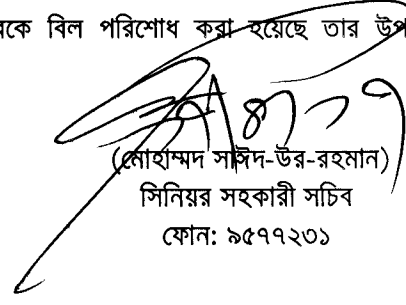 বিল পরিশোধ করা হয়েছে তার
(মোহাম্মদ সাঈদ-উর-রহমান)
সিনিয়র সহকারী সচিব
ফোন: ৯৫৭৭২৩১